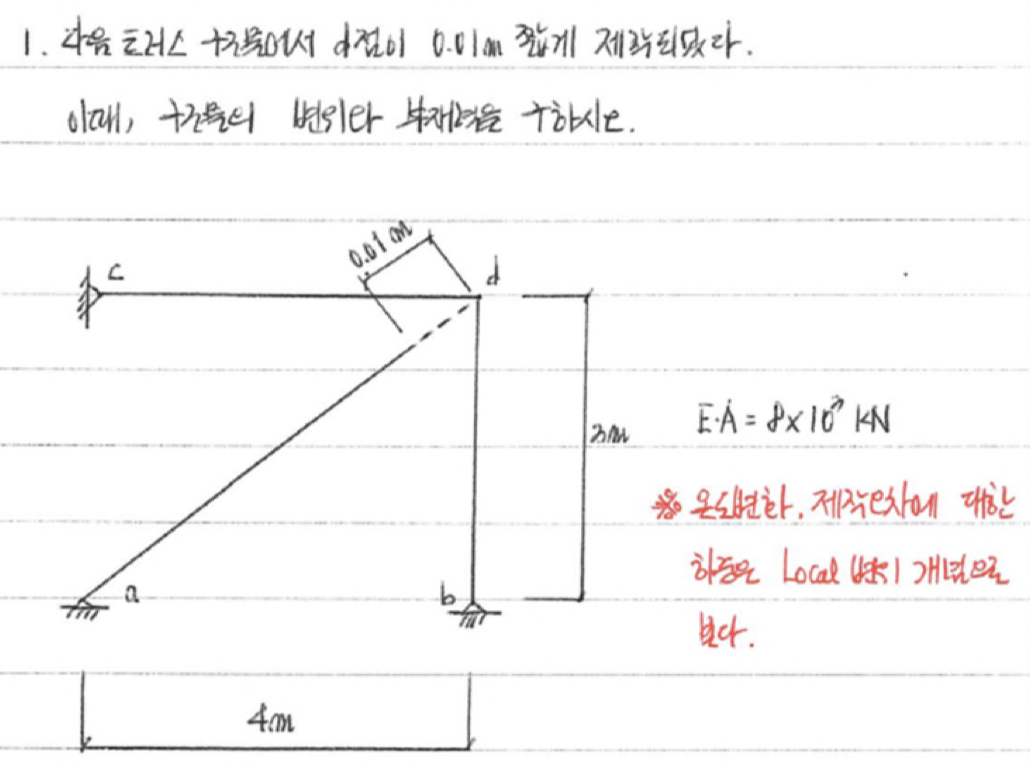 1. 다음 트러스 구조물에서 d점이 0.01m 짧게 제작되었다.
이때, 구조물의 변위와 부재력을 구하시오.
0.01m
c
d
3m
E·A = 8×10³ KN
※ 온도변화, 제작오차에 대한
하중은 Local 변위 개념으로
본다.
a
b
4m